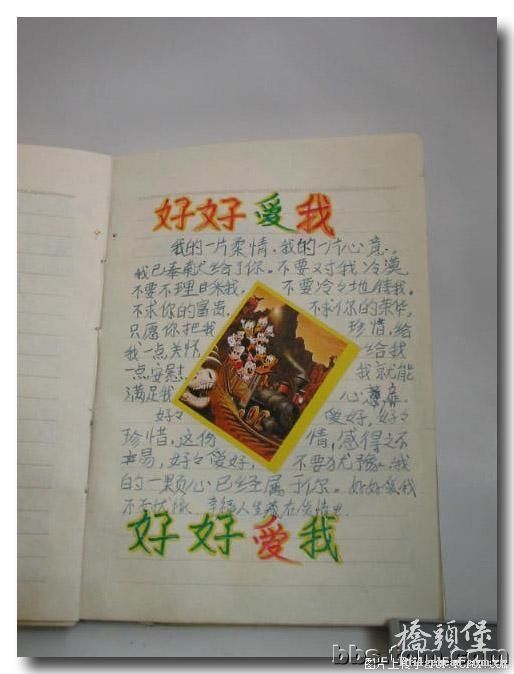 好好爱我
我的一片柔情、我的一片心意。
我已奉献给了你。不要对我冷漠
不要不理目来我, 不要冷々地待我。
不求你的富贵, 不求你的荣华,
只愿你把我 珍惜,给
我一点关怀 给我
一点安慰 我就能
满足我 心
好々 爱好,好々
珍惜,这份 情,感得之不
易,好々爱好, 不要犹豫,我
的一颗心已经属于你。好好爱我
不要犹豫 幸福人生藏在
好好爱我
橋頭堡
bbs.
图片上传于